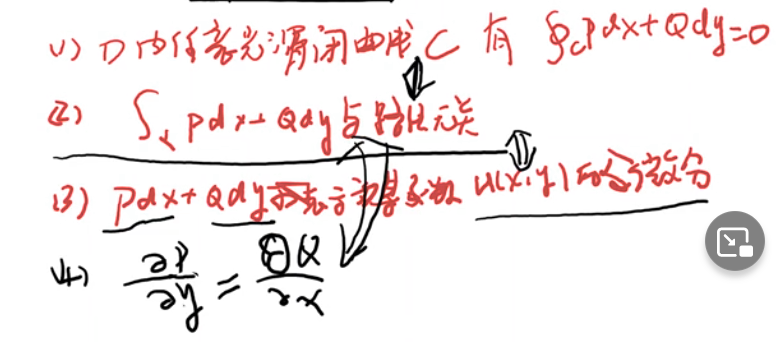 (1) D内任意光滑闭曲线 C 有 ∮_C Pdx+Qdy=0
(2) ∫_L Pdx+Qdy与路径无关
(3) Pdx+Qdy表示某函数 u(x,y)的全微分
(4) ∂P/∂y = ∂Q/∂x